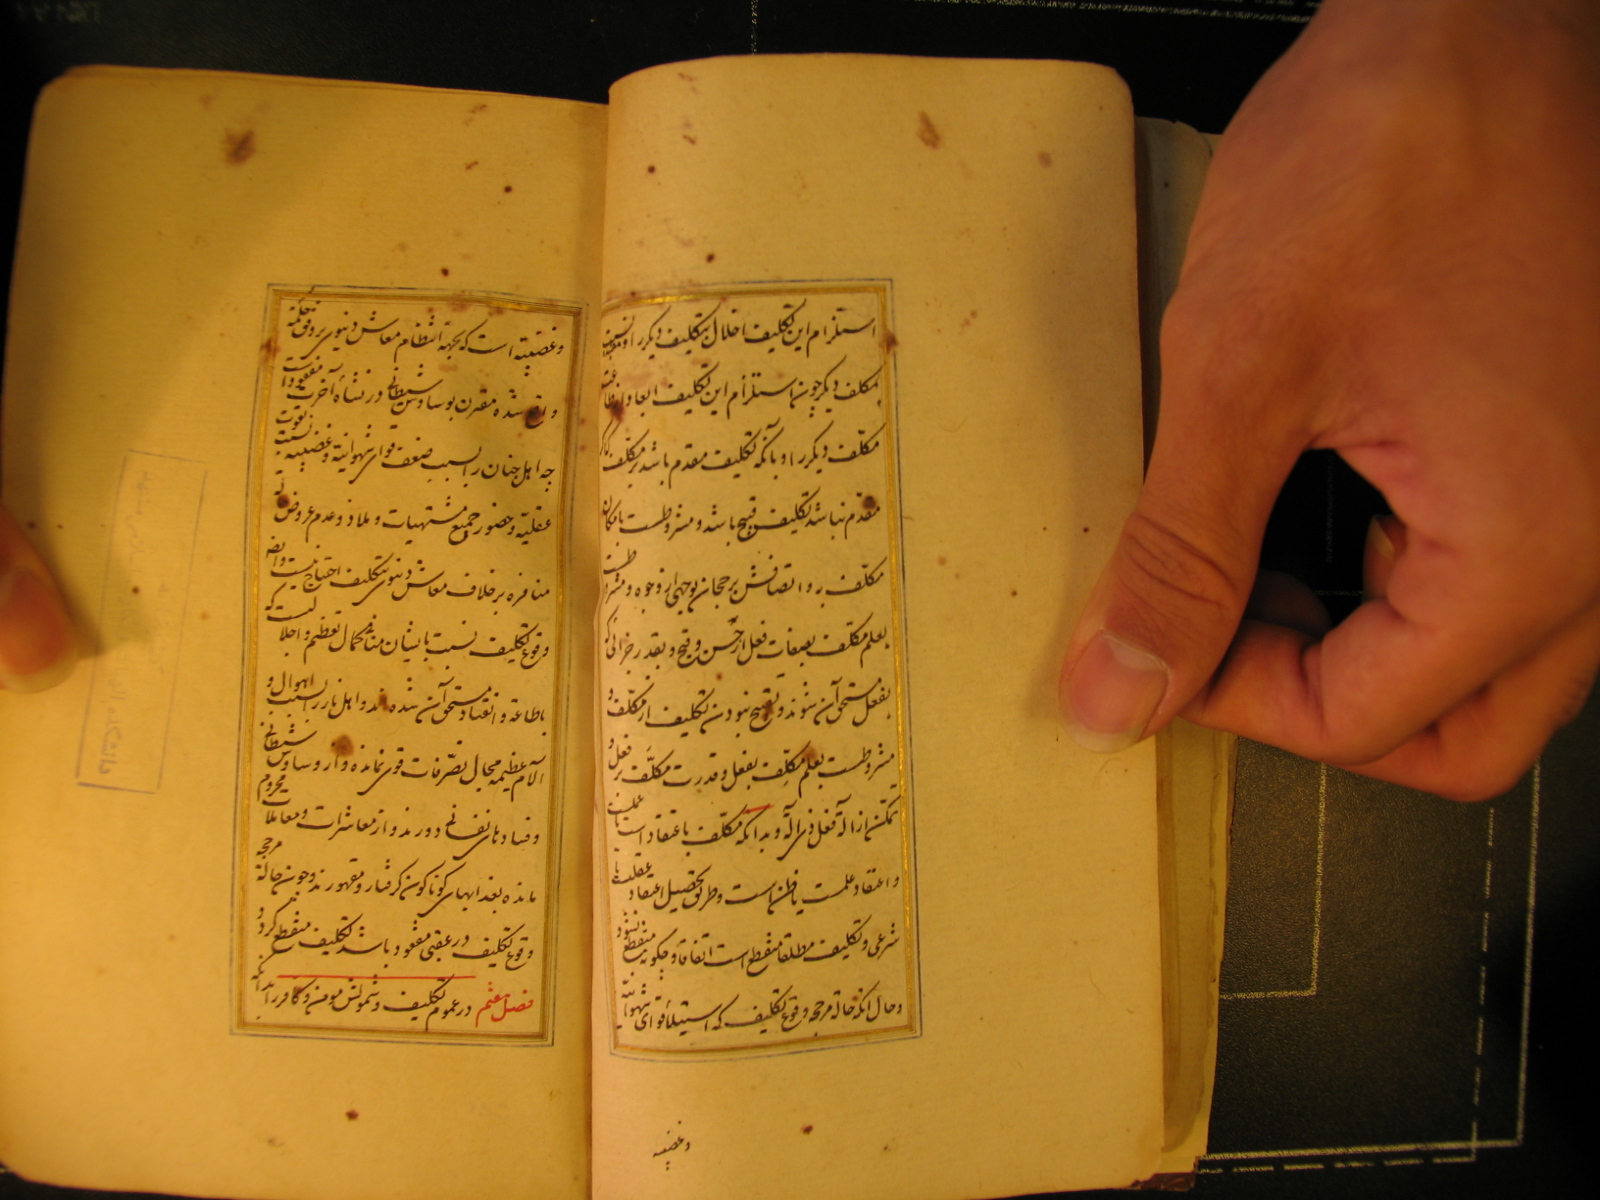 استلزام این تکلیف اخلال بتکلیف دیگر را
مکلف دیگر چون استلزام این تکلیف ابعاد
مکلف دیگر را و بآنکه تکلیف مقدم باشد بر مکلف
مقدم نباشد تکلیف قبیح باشد و مشروطست بامکان
مکلف به و اتصافش برجحان بوجهی از وجوه و مشروطست
بعلم مکلف بصفات فعل از حسن و قبح و بقدر جزائی که
بفعل مستحق آن شوند و قبیح نبودن تکلیف از مکلف و
مشروطست بعلم مکلف بفعل و قدرت مکلف بر فعل و
تمکن از آلة فعل ذی آلة و بدانکه مکلف به اعتقاد است یا عملیست
و اعتقاد علمست یا ظن است و طریق تحصیل اعتقاد عقلیست یا
شرعی و تکلیف مطلقا منقطع است اتفاقا و چگونه منقطع نشود
و حال آنکه حالة مرجحه وقوع تکلیف که استیلاء قوای شهوانیه
وغضبیه
وغضبیه است که بجهة انتظام معاش دنیوی بر وفق حکمة
واقع شده مقرن بوساوس شیطانی در نشأه آخرت مفقود است
چه اهل جنان را بسبب ضعف قوای شهوانیة و غضبیه نسبت بقوت
عقلیة و حضور جمیع مشتهیات و ملاذ و عدم عروض
منافره بر خلاف معاش دنیوی بتکلیف احتیاج نیست و ایضا
وقوع تکلیف نسبت بایشان منافی کمال تعظیم و اجلالیست که
باطاعة و انقیاد مستحق آن شده‌اند و اهل نار را بسبب اهوال و
آلام عظیمه مجال تصرفات قوی نمانده و از وساوس شیطانی
و فسادهای نفسانی دورند و از معاشرات و معاملات محروم
مانده بعذابهای گوناگون گرفتار و مقهورند و چون حالة مرجحه
وقوع تکلیف در عقبی مفقود باشد تکلیف منقطع گردد
فصل هفتم در عموم تکلیف و شمولش مومن و کافر را بدانکه